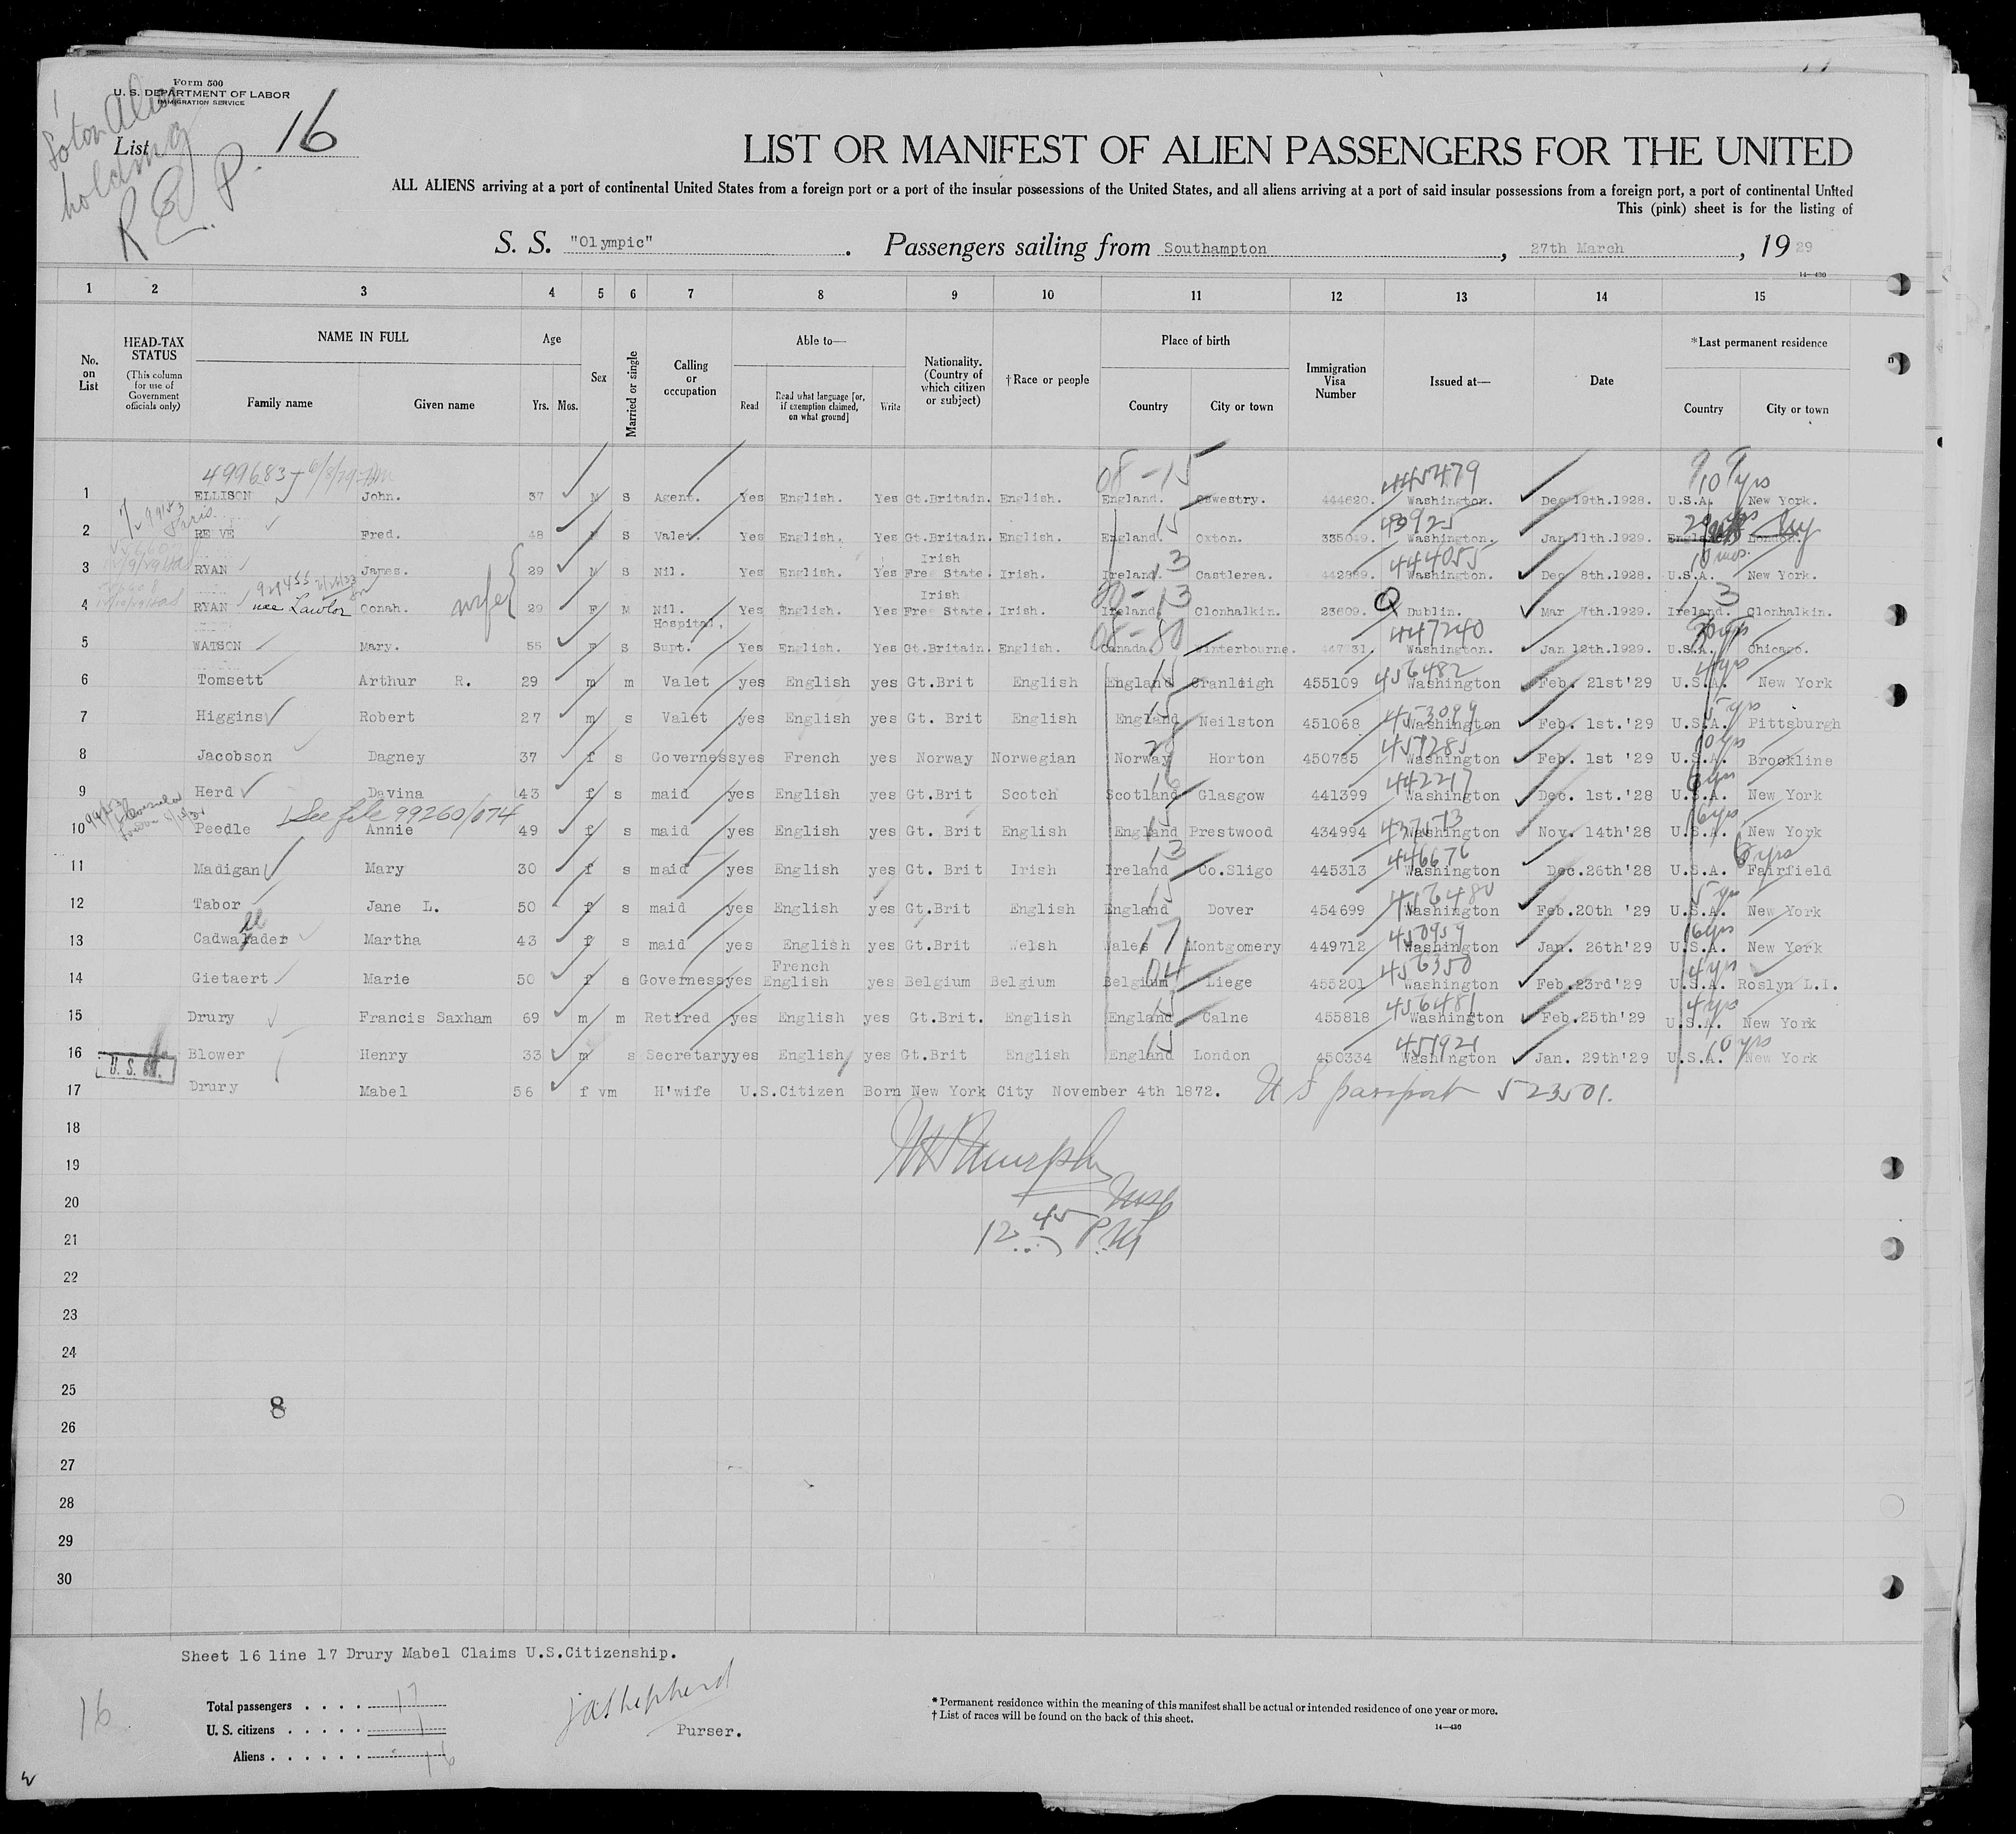 Form 500
U. S. DEPARTMENT OF LABOR
IMMIGRATION SERVICE
List 16
holding
R.E.P.
LIST OR MANIFEST OF ALIEN PASSENGERS FOR THE UNITED
ALL ALIENS arriving at a port of continental United States from a foreign port or a port of the insular possessions of the United States, and all aliens arriving at a port of said insular possessions from a foreign port, a port of continental United
This (pink) sheet is for the listing of
S. S. "Olympic". Passengers sailing from Southampton, 27th March, 1929
14—430
1 2 3 4 5 6 7 8 9 10 11 12 13 14 15
No. on List
HEAD-TAX STATUS (This column for use of Government officials only)
NAME IN FULL Family name Given name
Age Yrs. Mos.
Sex
Married or single
Calling or occupation
Able to— Read Read what language [or, if exemption claimed, on what ground] Write
Nationality. (Country of which citizen or subject)
† Race or people
Place of birth Country City or town
Immigration Visa Number
Issued at—
Date
* Last permanent residence Country City or town
499683 445479 10 yrs
1 ELLISON John. 37 M S Agent. Yes English. Yes Gt.Britain. English. England. Oswestry. 444620. Washington. Dec 19th.1928. U.S.A. New York.
2 REEVE Fred. 48 M S Valet. Yes English. Yes Gt.Britain. English. England. Oxton. 335049. Washington. Jan 11th.1929. England. London.
444055
3 RYAN James. 29 M S Nil. Yes English. Yes Irish Free State. Irish. Ireland. Castlerea. Washington. Dec 8th.1928. U.S.A. New York.
4 RYAN nee Lawlor Oonah. wife 29 F M Nil. Yes English. Yes Irish Free State. Irish. Ireland. Clonhalkin. 23609. Dublin. Mar 7th.1929. Ireland. Clonhalkin.
447240
5 WATSON Mary. 55 F S Hospital. Supt. Yes English. Yes Gt.Britain. English. Canada. Winterbourne. Washington. Jan 12th.1929. U.S.A. Chicago.
456482 4 yrs
6 Tomsett Arthur R. 29 m m Valet yes English yes Gt.Brit English England Cranleigh 455109 Washington Feb. 21st'29 U.S.A. New York
453099 5 yrs
7 Higgins Robert 27 m s Valet yes English yes Gt. Brit English England Neilston 451068 Washington Feb. 1st.'29 U.S.A. Pittsburgh
457285 10 yrs
8 Jacobson Dagney 37 f s Governess yes French yes Norway Norwegian Norway Horton 450785 Washington Feb. 1st '29 U.S.A. Brookline
442217 6 yrs
9 Herd Davina 43 f s maid yes English yes Gt.Brit Scotch Scotland Glasgow 441399 Washington Dec. 1st.'28 U.S.A. New York
See file 99260/674 6 yrs
10 Peedle Annie 49 f s maid yes English yes Gt. Brit English England Prestwood 434994 Washington Nov. 14th'28 U.S.A. New York
446676 6 yrs
11 Madigan Mary 30 f s maid yes English yes Gt. Brit Irish Ireland Co.Sligo 445313 Washington Dec.26th'28 U.S.A. Fairfield
456480 5 yrs
12 Tabor Jane L. 50 f s maid yes English yes Gt.Brit English England Dover 454699 Washington Feb.20th '29 U.S.A. New York
450959 16 yrs
13 Cadwallader Martha 43 f s maid yes English yes Gt.Brit Welsh Wales Montgomery 449712 Washington Jan. 26th'29 U.S.A. New York
456350 4 yrs
14 Gietaert Marie 50 f s Governess yes French English yes Belgium Belgium Belgium Liege 455201 Washington Feb.23rd'29 U.S.A. Roslyn L.I.
456481 4 yrs
15 Drury Francis Saxham 69 m m Retired yes English yes Gt.Brit. English England Calne 455818 Washington Feb.25th'29 U.S.A. New York
451921 10 yrs
16 Blower Henry 33 m s Secretary yes English yes Gt.Brit English England London 450334 Washington Jan. 29th'29 U.S.A. New York
17 Drury Mabel 56 f m H'wife U.S.Citizen Born New York City November 4th 1872. U S passport 523501.
18
19
20
12 45 P.M
21
22
23
24
25
8
26
27
28
29
30
Sheet 16 line 17 Drury Mabel Claims U.S.Citizenship.
16
Total passengers . . . . 17
U. S. citizens . . . . . 1
Aliens . . . . . . 16
J A Shepherd
Purser.
* Permanent residence within the meaning of this manifest shall be actual or intended residence of one year or more.
† List of races will be found on the back of this sheet.
14—430